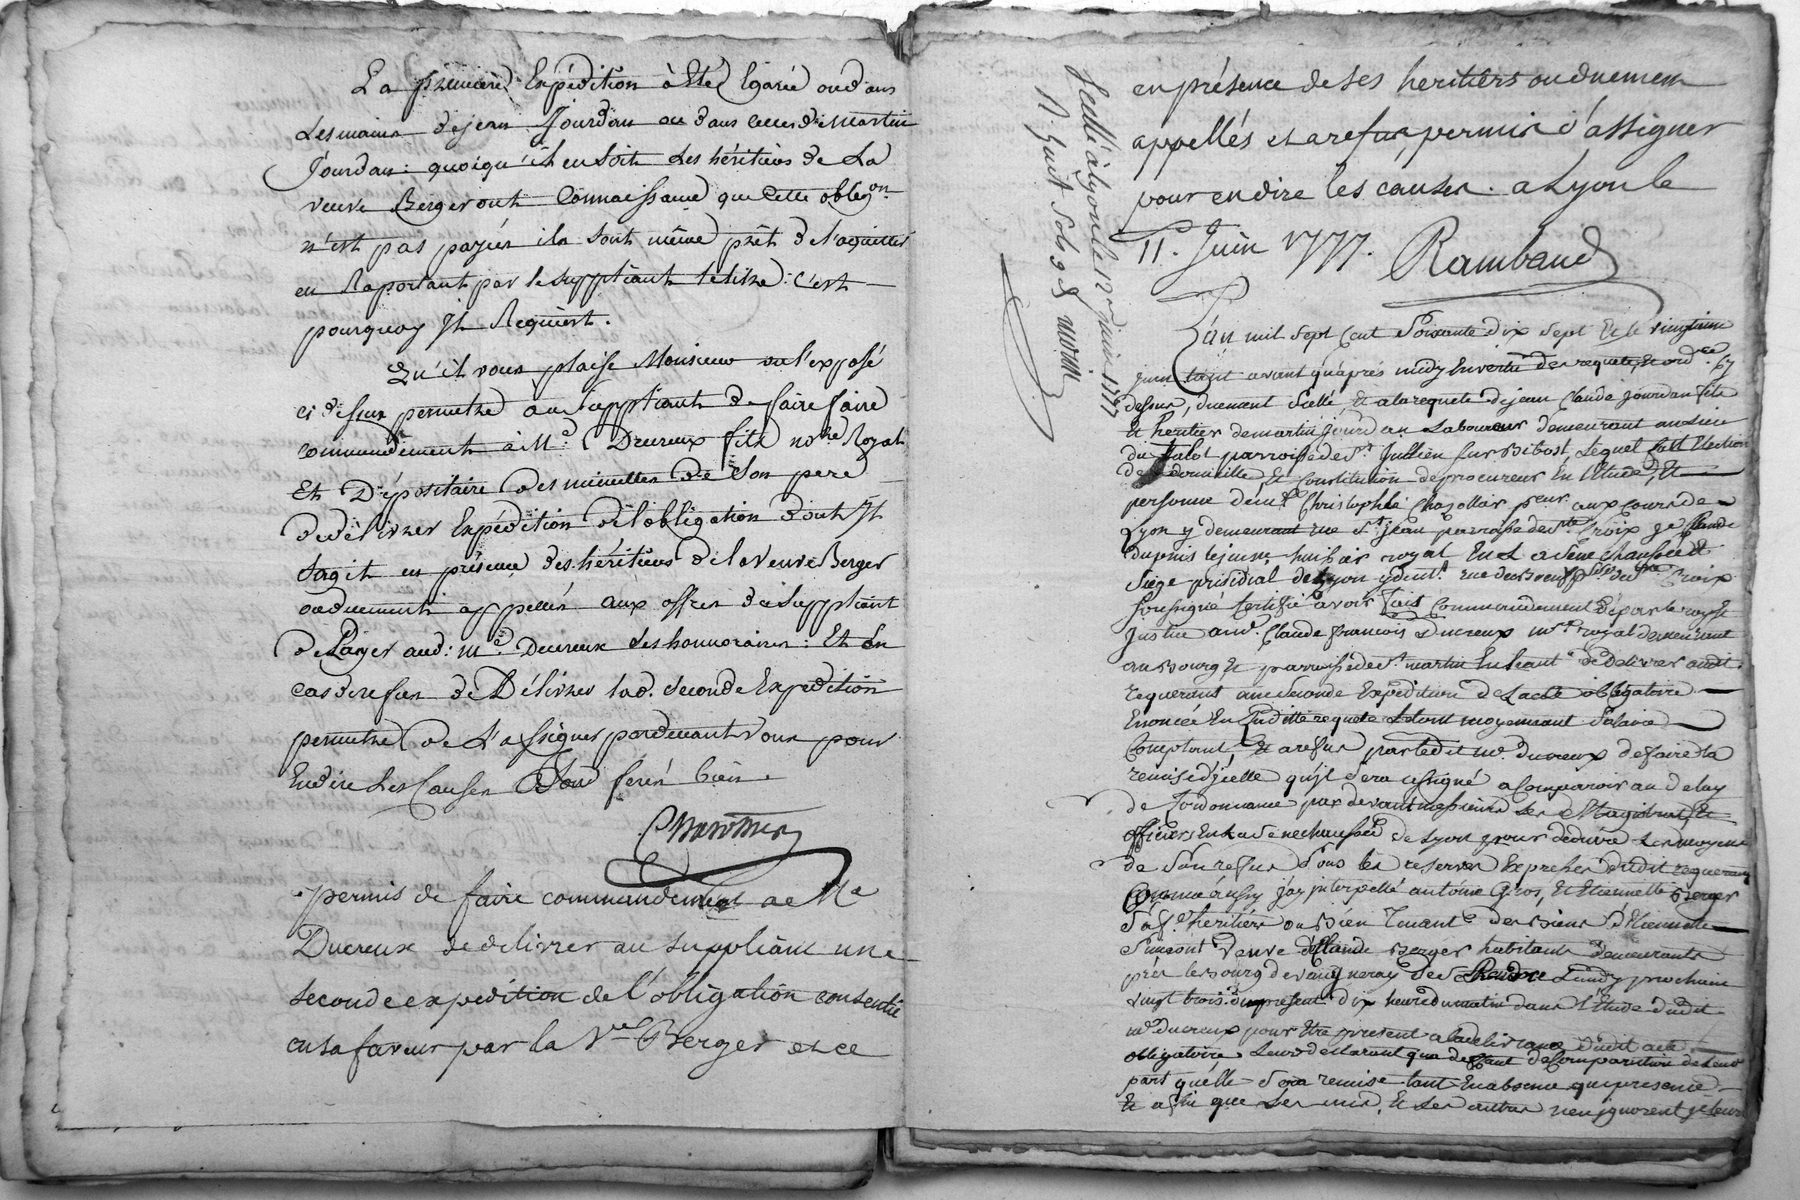 La premiere Expédition à Eté Egarée ou dans
Les mains de jean Jourdan ou dans celles de Martin
Jourdan: quoiqu'il en soit Les héritiers de La
veuve Berger ont Connaissance que Cette oblig.on
n'est pas payée ils sont même prêt de l'aquitter
en Raportant par le suppliant le titre: c'est
pourquoy Il Requiert.
Qu'il vous plaise Monsieur vu l'exposé
ci dessus permettre au suppliant de faire faire
commandement à M.e Ducreux fils no.re Royal
Et Dépositaire des minuttes de Son pere
de délivrer Expédition de l'obligation dont Il
sagit en présence des héritiers de la Veuve Berger
ou duement appellés aux offres du Suppliant
de Payer aud: m.e Ducreux les honnoraires: Et En
cas de refus de Délivrer lad. seconde Expedition
permettre de L'assigner pardevant vous pour
En dire Les Causes Et vous ferés bien.
permis de faire commandement a Me
Ducreux de delivrer au suppliant une
seconde expedition de l'obligation consentie
en sa faveur par la V.ve Berger et ce
Scellé à Lyon le 12 juin 1777
R. huit sols 9 d
en présence de ses heritiers ou duement
appellés et a refus, permis d'assigner
pour en dire les causes. a Lyon le
11. Juin 1777. Rambaud
L'an mil sept Cent Soixante dix sept Et le vingtieme
juin tant avant qu'aprés midy En vertu des requete et ord.ce cy
dessus, duement Scellé Et a la requete de jean Claude Jourdan fils
Et heritier de martin Jourdan Laboureur demeurant au lieu
du paroisse de S.t Jullien sur Bibost, Lequel fait Election
de domicille, Et Constitution de procureur En l'Etude, Et
personne de m.e Christophle Chazottier p.eur aux cours de
Lyon y demeurant rue S.t Jean paroisse de s.te Croix je Claude
Dupuis le jeune huissier royal En La Sénéchaussée Et
Siége présidial de Lyon y dem.t rue du Boeuf p.sse de s.te Croix
soussigné Certifie avoir fait Commandement de par le roy Et
Justice a m.e Claude françois Ducreux n.re royal demeurant
au Bourg Et paroisse de S.t martin En haut de Delivrer audit
requerant une Seconde Expédition de L'acte obligatoire
Enoncée En Laditte requete Le tout moyennant Salaire
Comptant, Et a refus par ledit m.e Ducreux de faire la
remise d'jcelle qu'jl sera assigné a Comparoir au delay
de L'ordonnance pardevant messieurs Les Magistrats Et
officiers En La Sénéchaussée de Lyon pour déduire Les moyens
de Son refus Sous les reserves Expresses dudit requerant
Comme aussy j'ay jnterpellé antoine Gros, Et Etiennette Berger
Sa f.e heritiére ou Bien Tenante des Biens d'Etiennette
Simeont Veuve de Claude Berger habitants demeurants
prés le Bourg de vaugneray de Se Rendre Lundy prochain
vingt trois du present dix heures du matin dans L'Etude dudit
m.e ducreux pour Etre present a la delivrance dudit acte
obligatoire Leurs declarant qu'a deffaut de Comparution de Leur
part qu'elle Sera remise tant En absence que presence
Et afin que Les uns, Et Les autres n'en jgnorent je leur